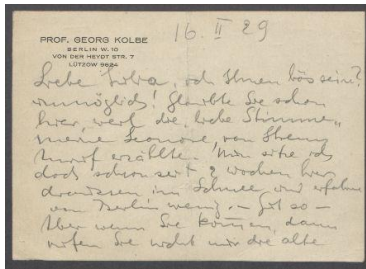 16. II 29
PROF. GEORG KOLBE
BERLIN W. 10
VON DER HEYDT STR. 7
LÜTZOW 9624
Liebe ich Ihnen bös sein?
unmöglich! Glaubte Sie schon
hier, weil die liebe Stimme
meine Leonore von Ihrem
erzählte. Nun sitze ich
doch schon seit 2 Wochen hier
draussen im Schnee und erfahre
von Berlin wenig. – Gut so –
Aber wenn Sie können, dann
rufen Sie wohl mir die alte